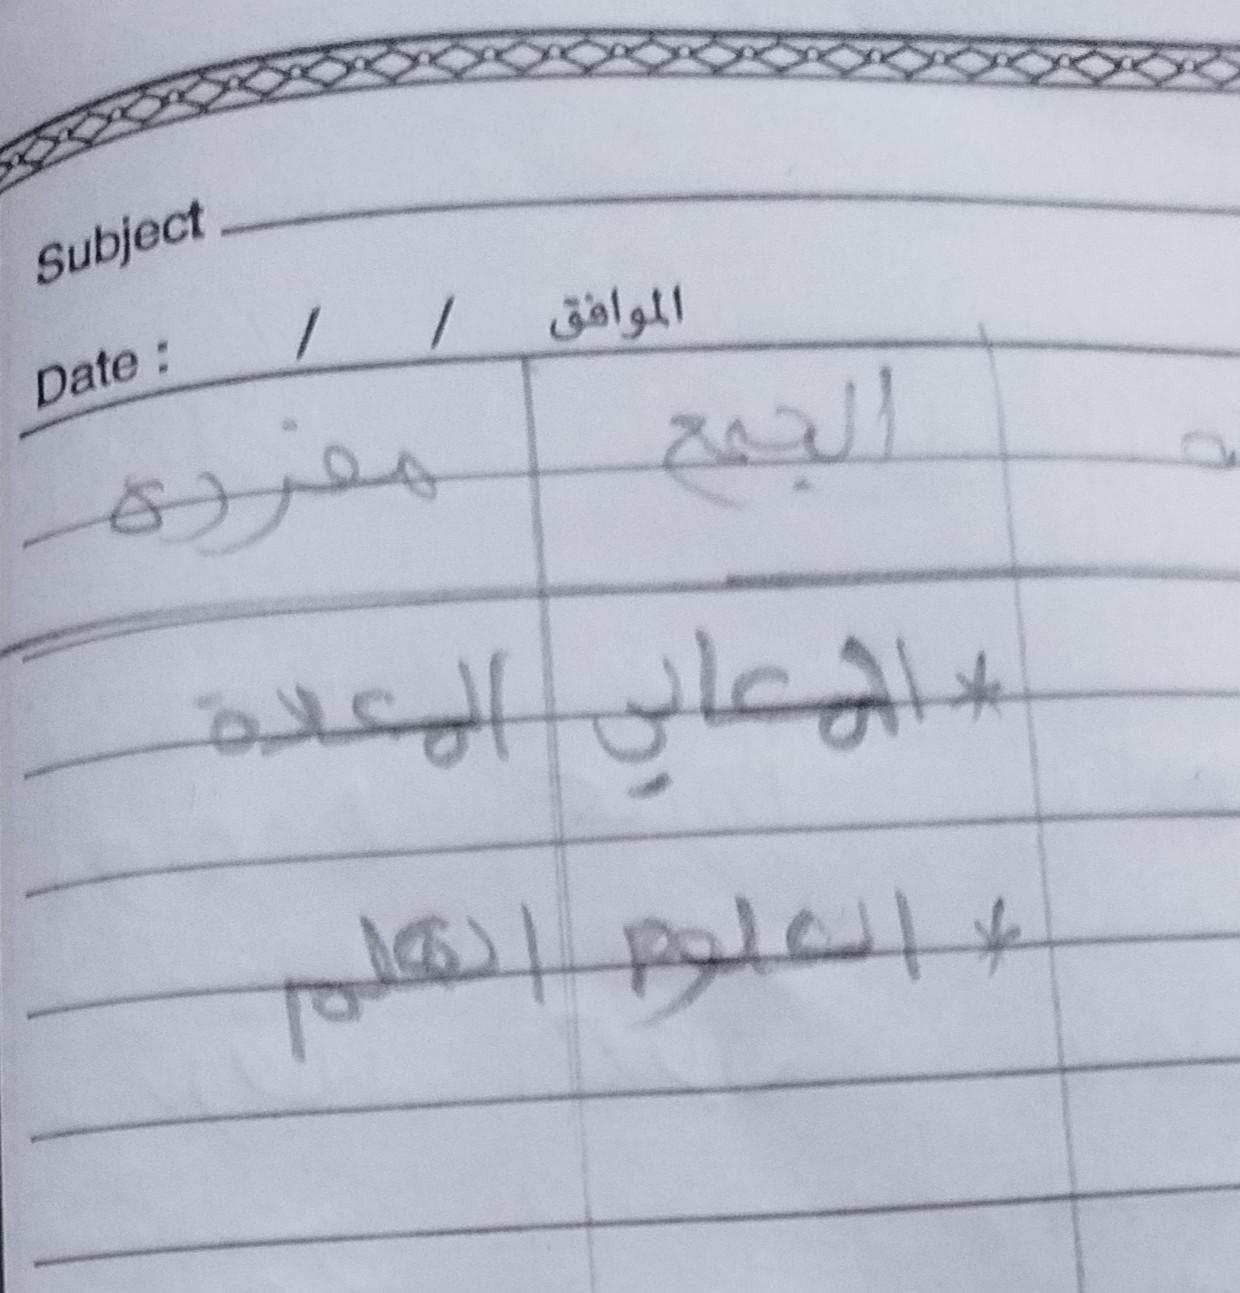 Subject
Date : / / الموافق
الجمع مفرده
* المعالي المعلاة
* العلوم العلم